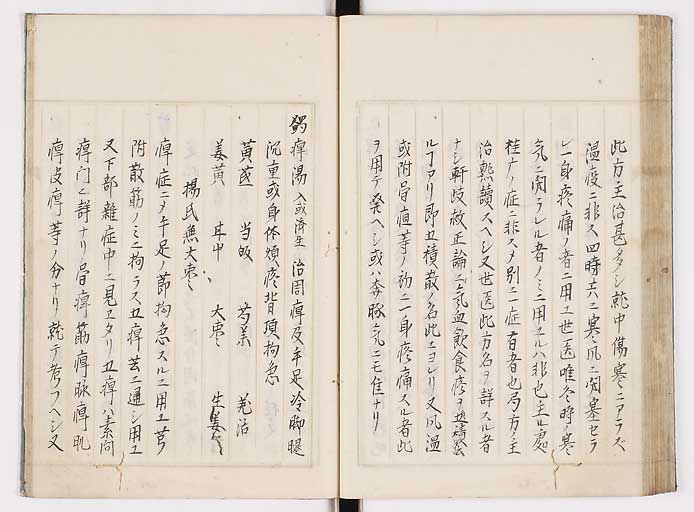 此方主治甚多シ就中傷寒ニアラズ
温疫ニ非ス四時共ニ寒風ニ閉塞セラ
レ一身疼痛ノ者ニ用ユ世医唯冬時ノ寒
気ニ閉ラレル者ノミニ用ユルハ非也主ル處
桂ナノ症ニ非スメ別ニ一症有者也局方ノ主
治熟讀スヘシ又世医此方名ヲ詳スル者
ナシ軒岐救正論ニ云気血飲食痰ヲ五積
ルヿアリ即五積散ノ名此ニヨレリ又風温
或附骨疽等ノ初ニ一身疼痛スル者此
ヲ用テ発ヘシ或ハ奔豚気ニモ佳ナリ
蠲痺湯 入或済生 治周痺及手足冷脚腿
沉重或身体煩疼背項拘急
黄芪 当皈 芍薬 羌活
姜黄 甘中 大棗 生姜
楊氏無大棗
痺症ニメ手足ノ節拘急スルニ用ユ
附散筋ノミニ拘ラス五痺共ニ通シ用ユ
又下部雜症中ニ見ヱタリ五痺ハ素問
痺門ニ詳ナリ骨痺筋痺脉痺肌
痺皮痺等ノ分ナリ就テ考フヘシ又